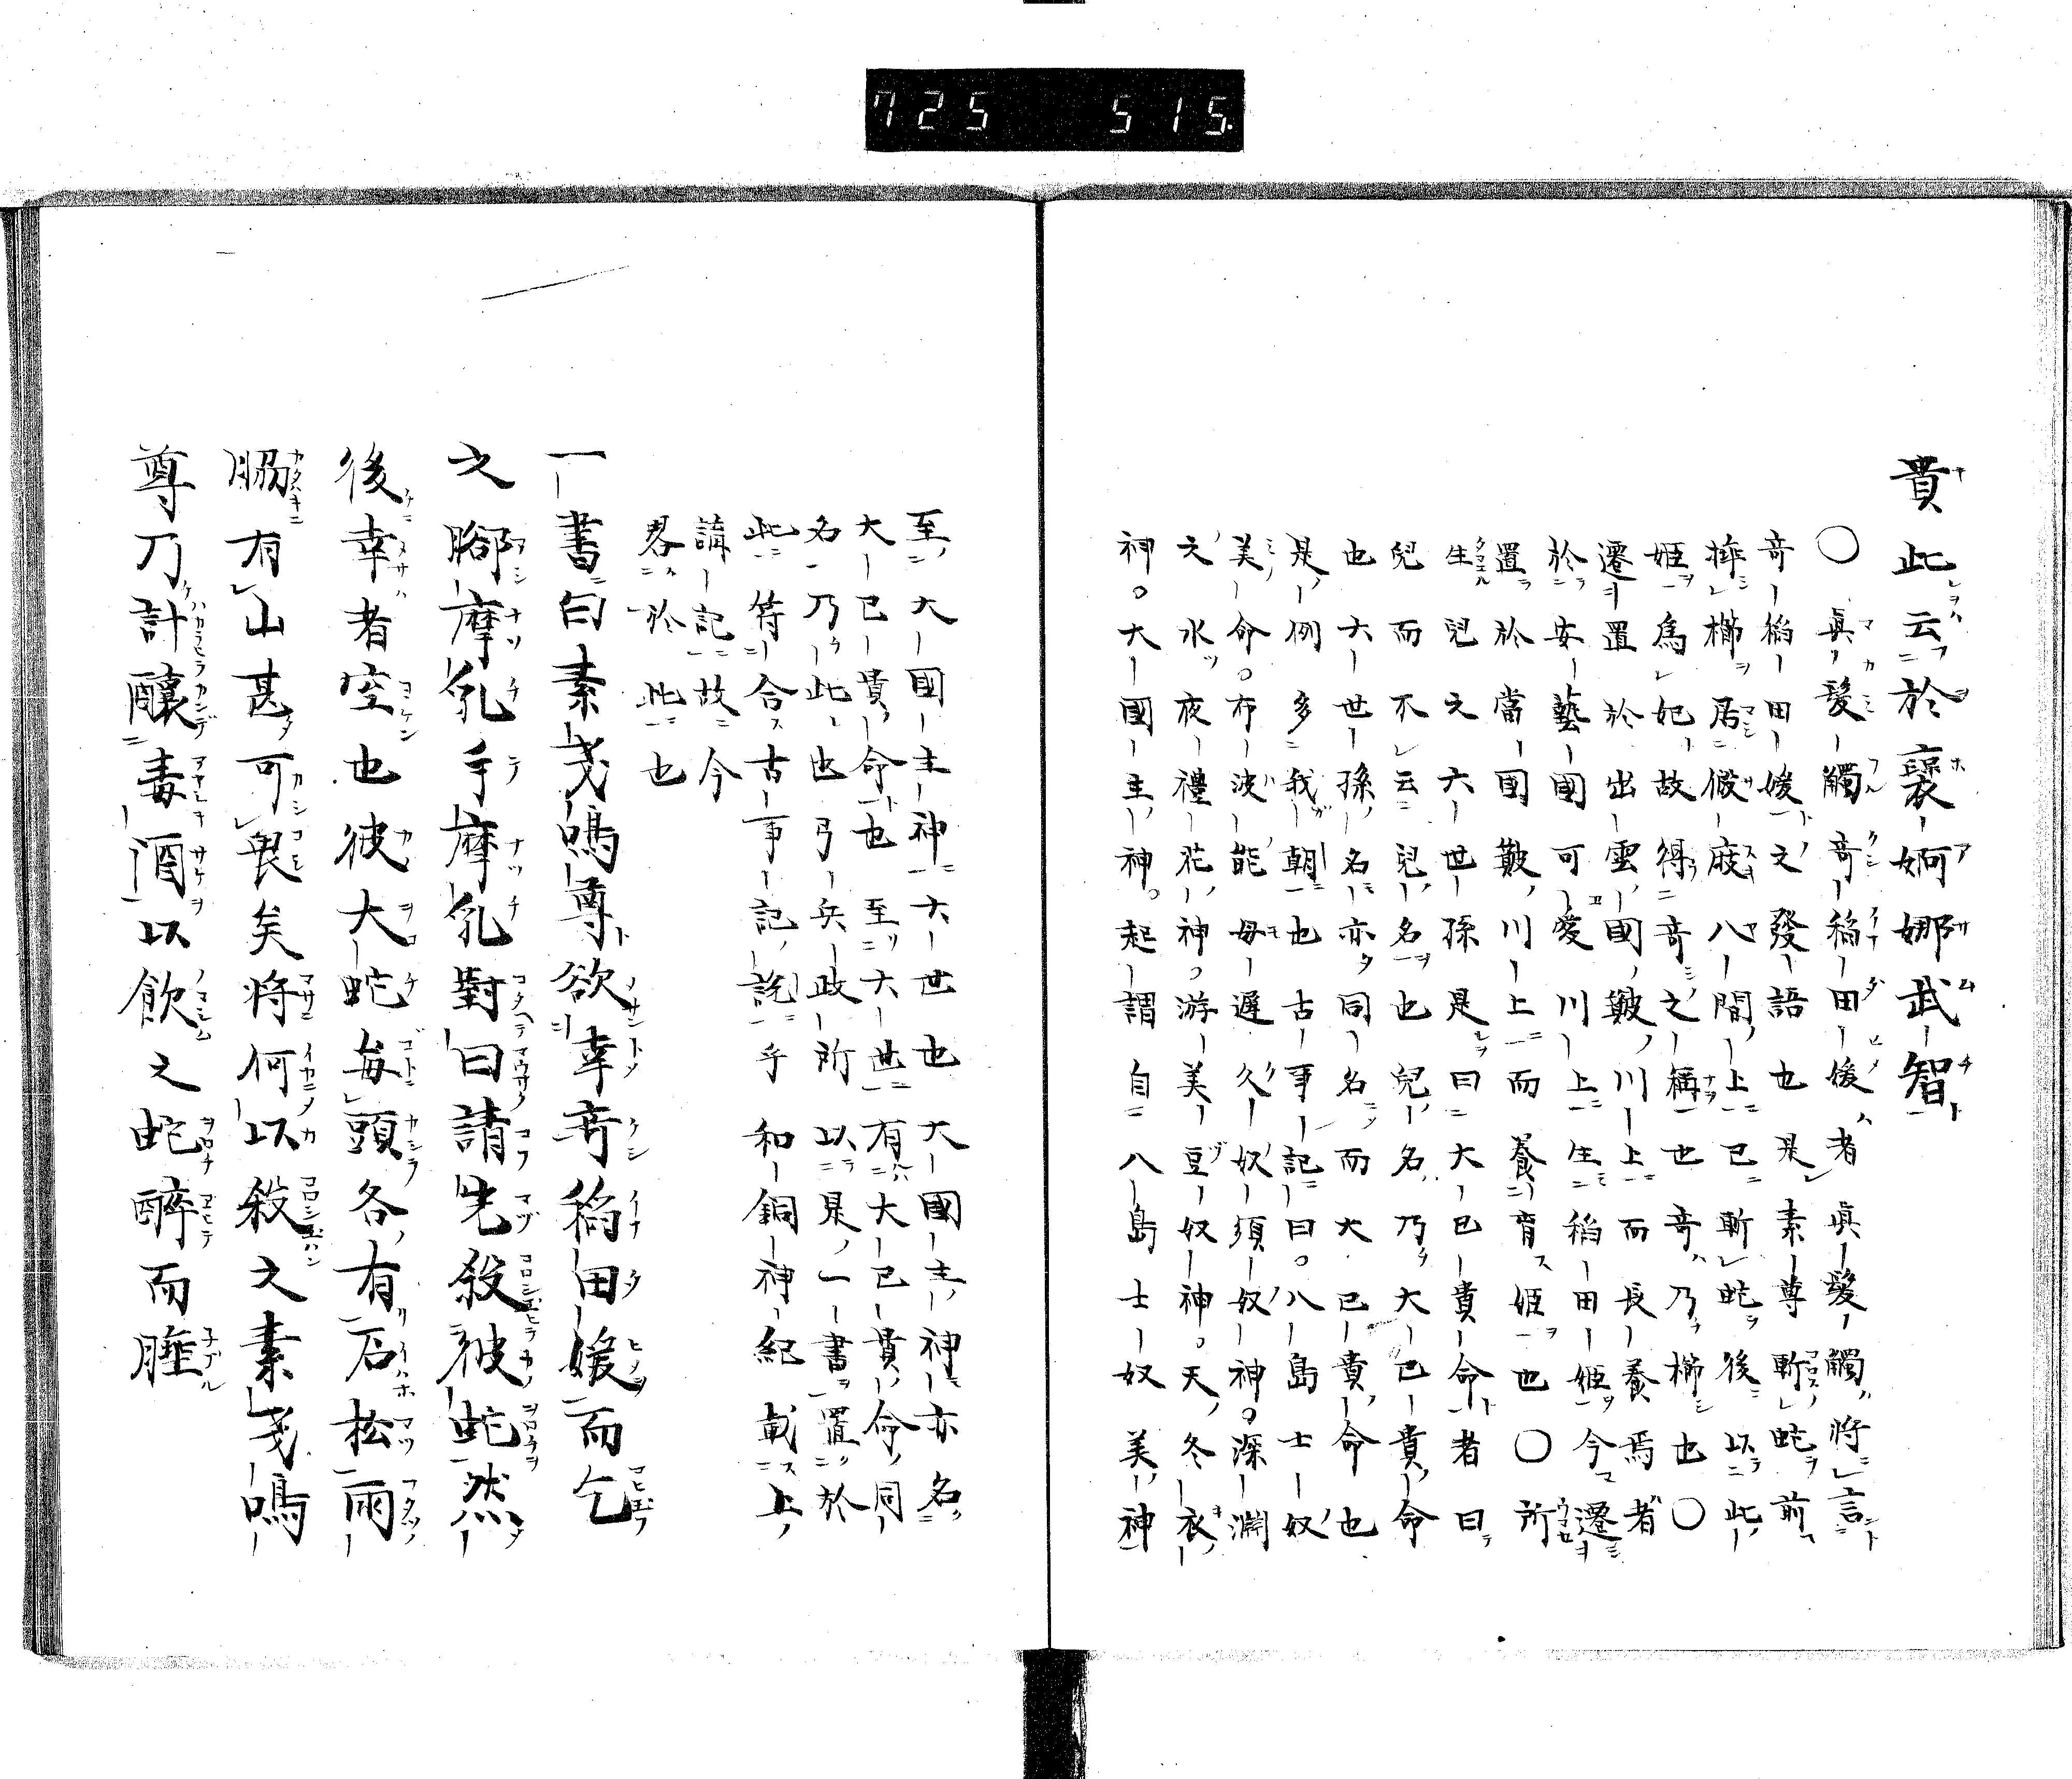 725 515.
貴此云於褁婀娜武智
〇眞髮觸奇稲田媛者眞髮觸将言
奇稲田媛之發語也是素尊斬蛇前
櫛居假庪八間上已斬蛇後以此
姫爲妃故得奇之稱也奇乃櫛也〇
遷置於出雲國簸川上而長養焉者
於安藝國可愛川上生稲田姫今遷
置於當國簸川上而養育姫也〇所
生兒之六世孫是曰大已貴命者曰
兒而不云兒名也兒名乃大已貴命
也六世孫名亦同名而大已貴命也
是例多我朝也古事記曰。八島士奴
美命。布波能母遲久奴須奴神。深淵
之水夜禮花神。游美豆奴神。天冬衣
神。大國主神。起謂自八島士奴美神
至大國主神六世也大國主神亦名
大已貴命也至六世有大已貴命同
名乃此也弓兵政所以是一書置於
此符合古事記説乎和銅神紀載上
講記故今
畧於此也
一書曰素戔嗚尊欲幸奇稲田媛而乞
之脚摩乳手摩乳對曰請先殺彼蛇然
後幸者空也彼大蛇毎頭各有石松兩
脇有山甚可畏矣将何以殺之素戔嗚
尊乃計釀毒酒以飲之蛇醉而睡